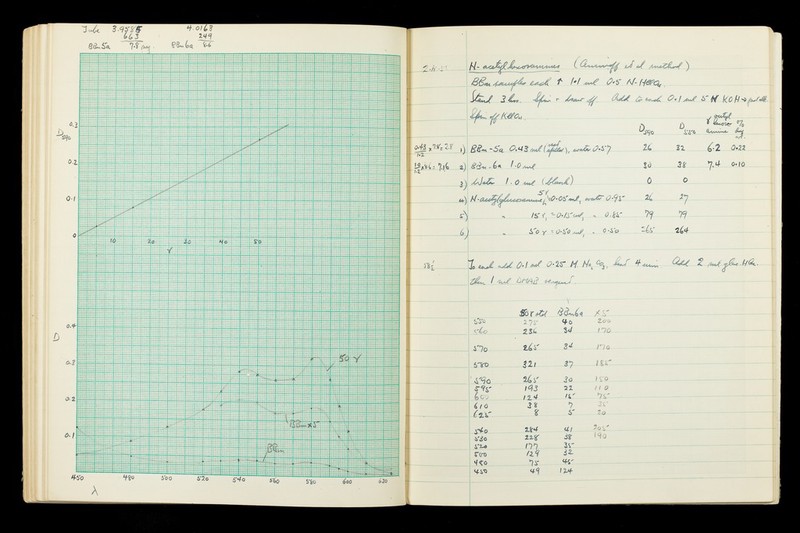 Tube 3.9485 4.0168
663 249
BBm 5a 7.8 mg. BBm 6a 8.6
0.3
D590
0.2
0.1
0
10 20 30 40 50
γ
0.4
D
0.3
0.2
0.1
50 γ
BBm x 5
BBm
450 480 500 520 540 560 580 600 620
λ
N-acetylglucosamine ( et al method)
BBm samples each ↑ 1.1 ml 0.5 N-
Stand 3 hrs. Spin + draw off. Add to each 0.1 ml 5 N KOH
Spin off KClO4.
D590 D550 γ acetyl glucosamine %
1) BBm-5a 0.43 ml, water 0.57 26 32 6.2 0.22
2) BBm-6a 1.0 ml 30 38 7.4 0.10
3) Water 1.0 ml (blank) 0 0
4) N-acetylglucosamine, 5γ 0.05 ml, water 0.95 26 27
5) " 15 γ, 0.15 ml, " 0.85 79 79
6) " 50 γ 0.50 ml, " 0.50 265 264
To each add 0.1 ml 0.25 M Na2CO3, heat 4 min. Add 2 ml glac HAc.
then 1 ml DMAB reagent.
50 γ std BBm6a x 5
550 275 40 200
560 236 34 170
570 265 34 170
580 321 37 185
590 265 30 150
595 193 22 110
600 124 15 75
610 38 7 35
625 8 5 20
540 284 41 205
530 228 38 190
520 177 35
500 129 32
480 75 45
450 49 124